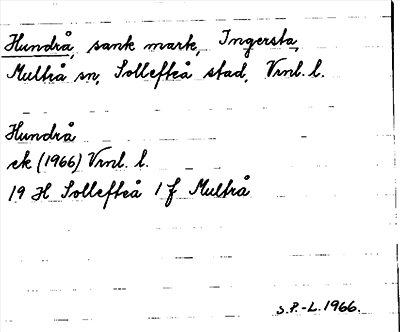 Hundrå, sank mark, Ingersta,
Multrå sn, Sollefteå stad, Vrnl. l.
Hundrå
ek (1966) Vrnl. l.
19 H Sollefteå 1 f Multrå
S.P.-L. 1966.